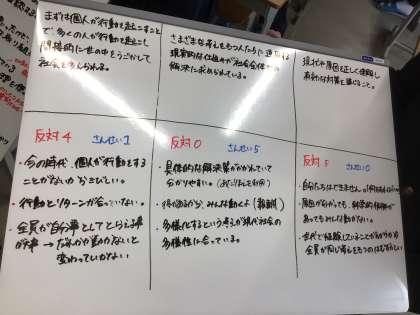 まずは個人が行動を起こすこと
で、多くの人が行動を起こし
間接的に世の中をうごかして
社会を
さまざまな考えをもつ人たちに適応する
現実的な仕組みが社会全体の
解決に求められている。
現状や原因を正しく理解し
有効な対策を講じること。
反対4 さんせい1
・今の時代、個人が行動をする
ことがないからさびしい。
・行動とリターンが合っていない。
・全員が自分事としてとらえる事
が大事→だれかが動かないと
変わっていかない
反対0 さんせい5
・具体的な解決策がかかれていて
分かりやすい。
・得があるから、みんな動くよ(報酬)
・多様化するという考えが現代社会の
多様性に合っている。
反対5 さんせい0
・自分たちはできません。
・原因が分かっても、科学的根拠が
あってもみんな動かない。
・世代で経験していることがちがうから
全員が同じ考えをもつのはむずかしい